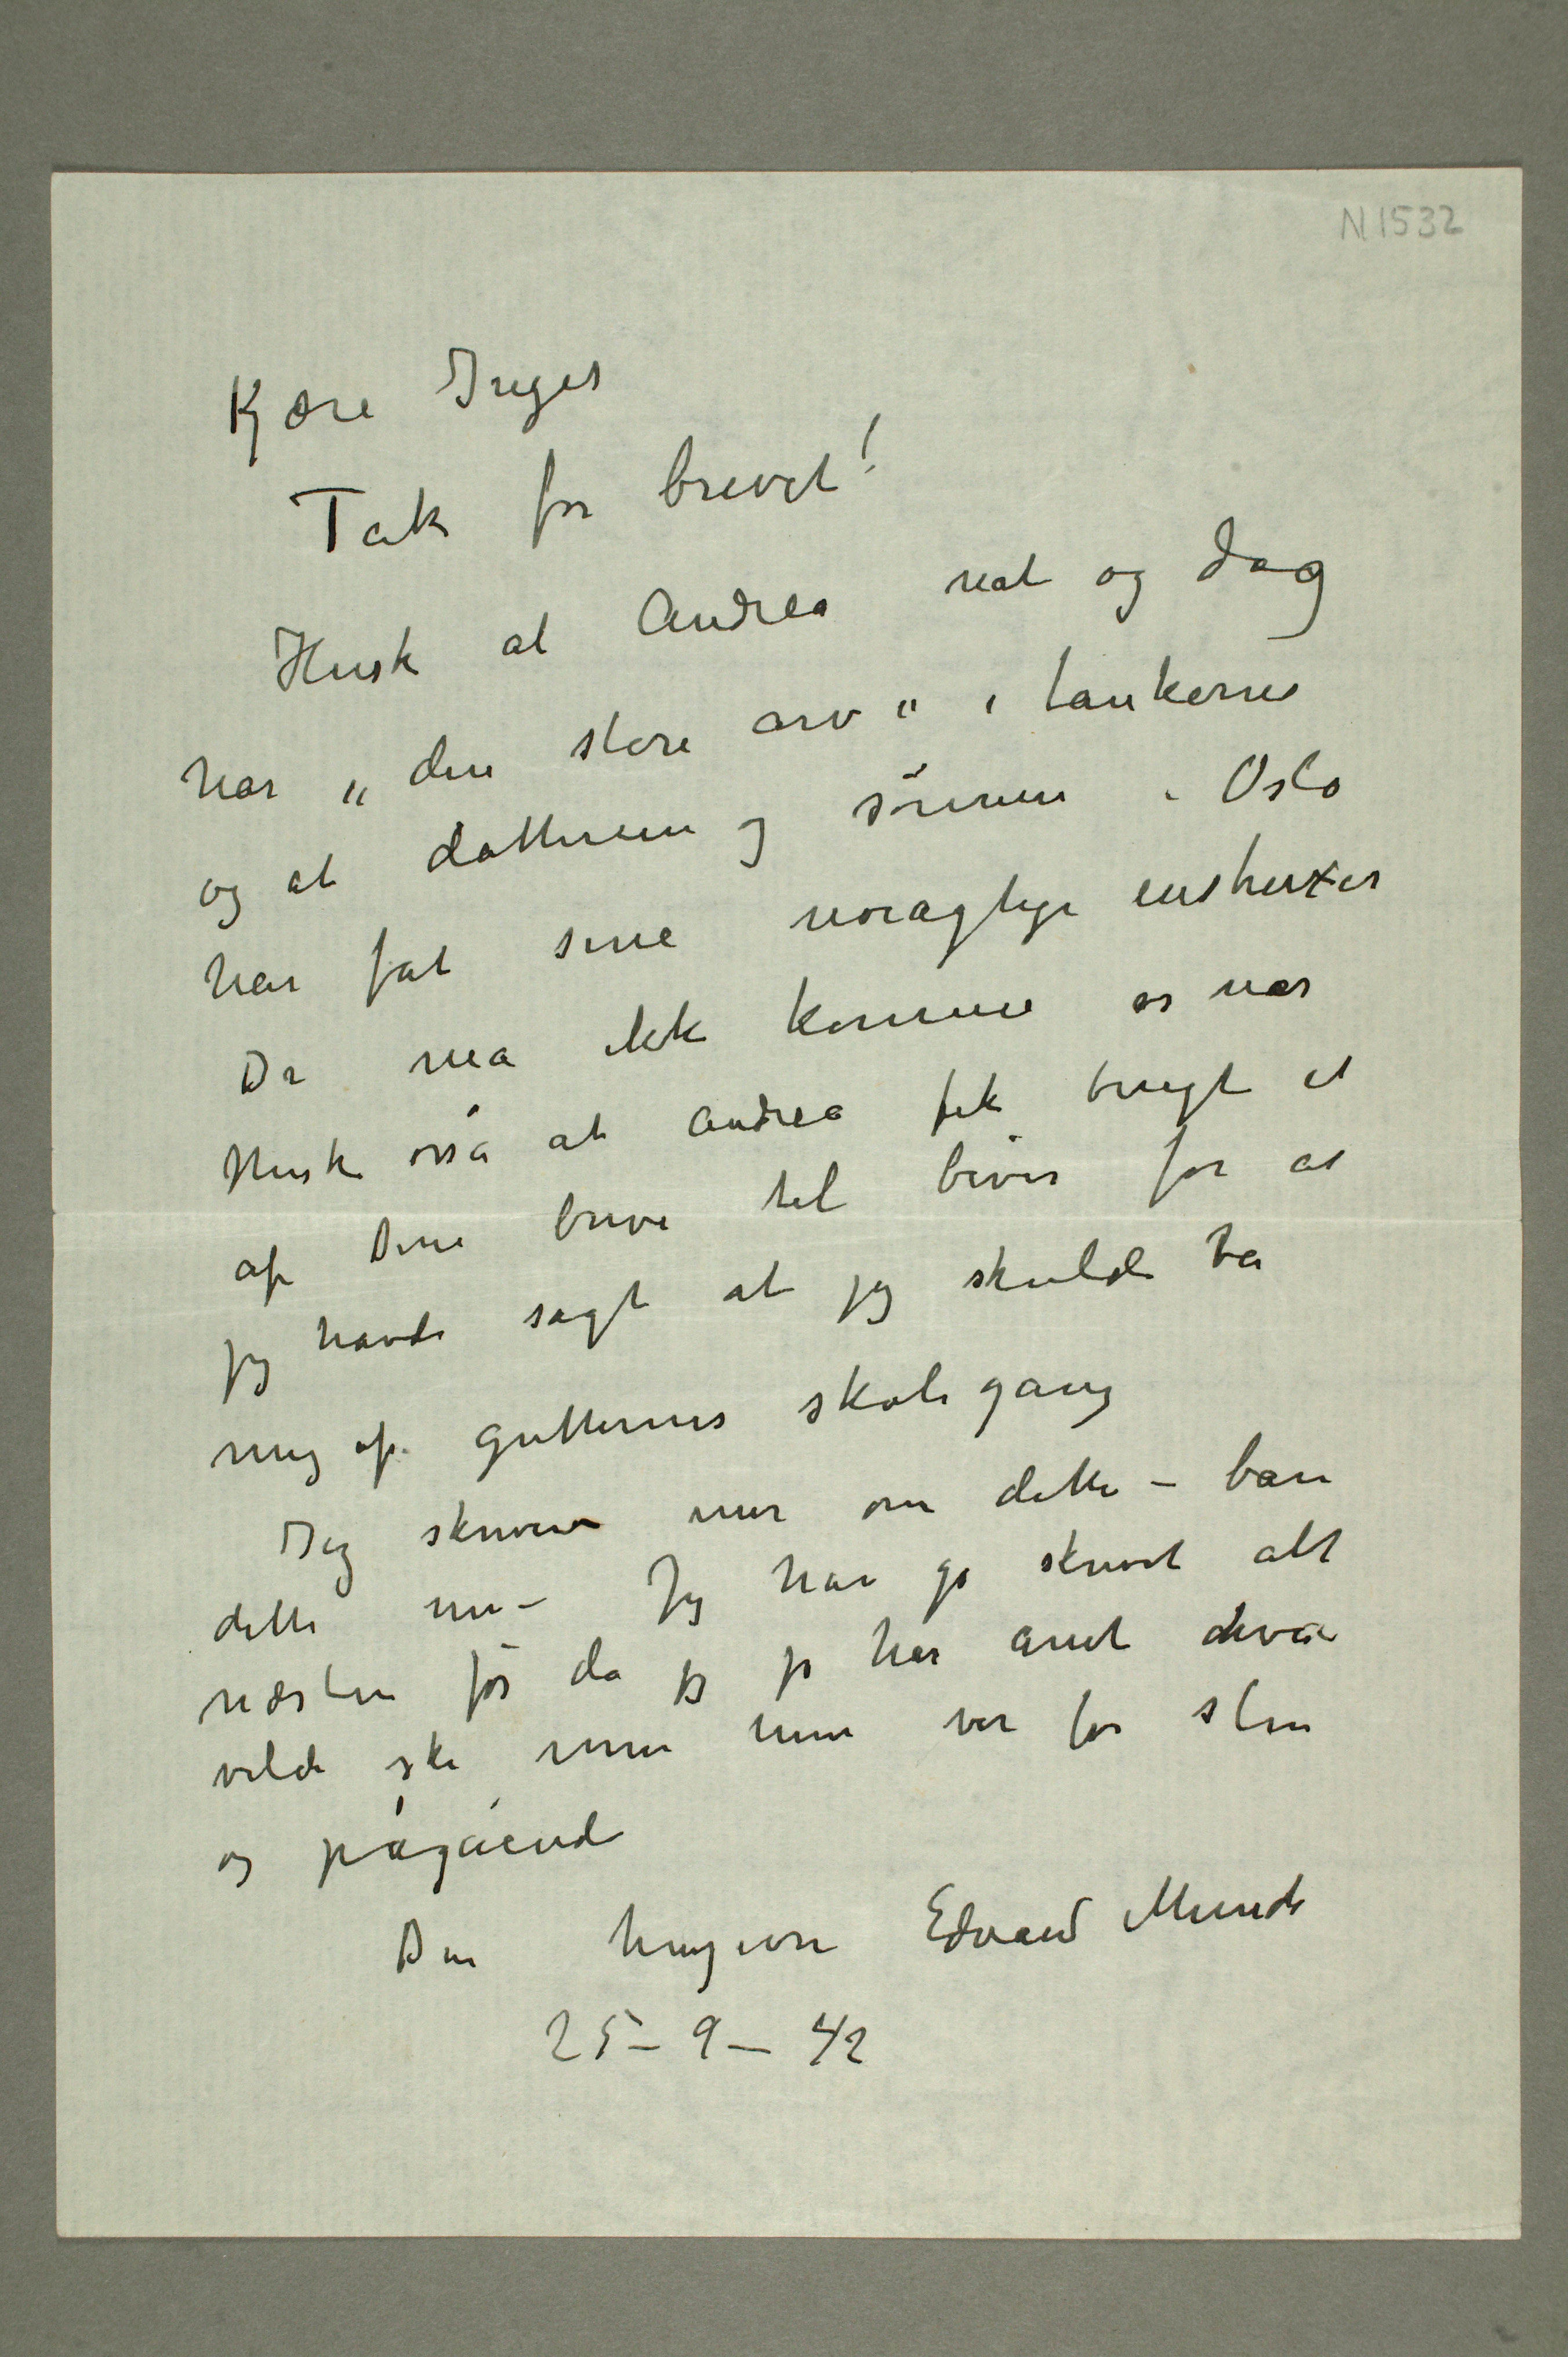 N 1532
Kjære Inger
Tak for brevet!
Husk at Andrea nat og dag
har „den store arv" i tankerne
og at datteren og sønnen i Oslo
har fåt sine nøiagtige enstruxer
De må ikke komme os nær
Husk osså at Andrea fik brugt et
af Dine breve til bevis for at
jeg havde sagt at jeg skulde ta
mig af gutternes skolegang
Jeg skriver mer om dette – bare
dette nu – Jeg har jo skrevet alt
næsten før da jeg jo har anet hva
vilde ske men hun var for slem
og pågående
Din hengivne Edvard Munch
25 – 9 – 42